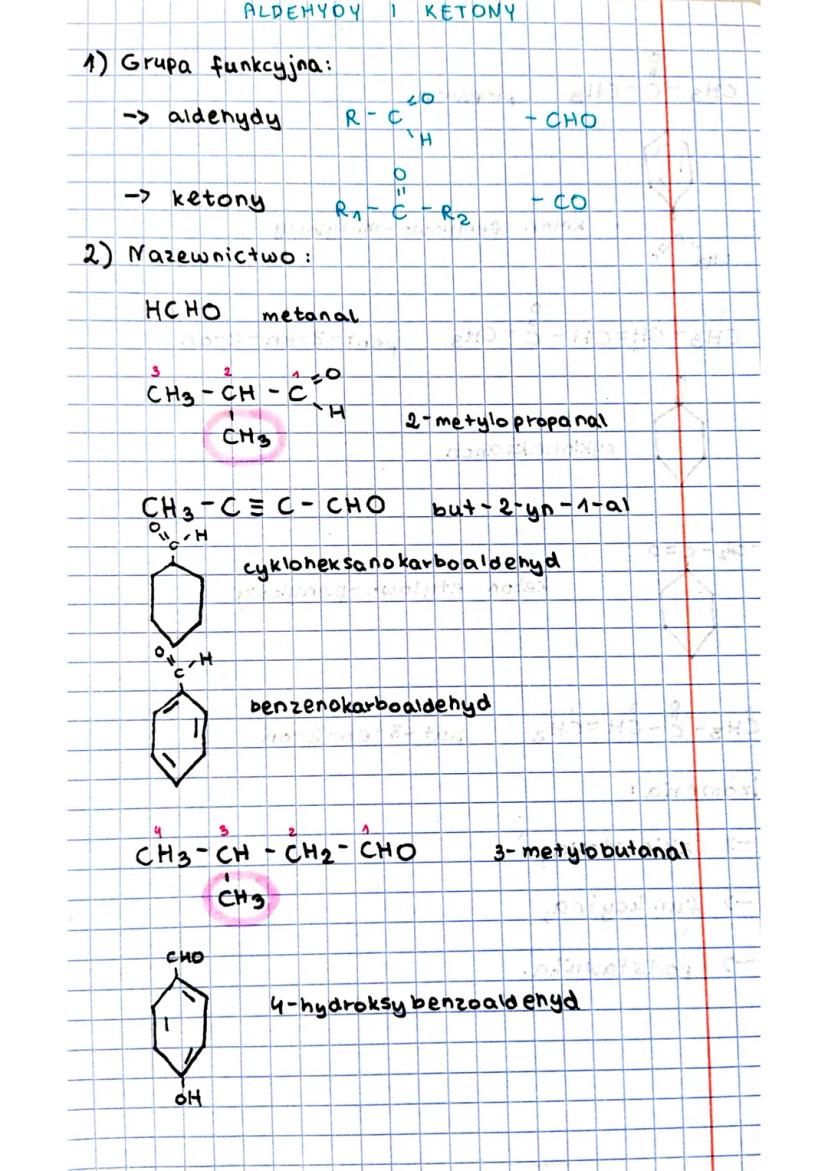 ALDEHYDY I KETONY
1) Grupa funkcyjna:
-> aldehydy R - C =O - CHO
\ H
O
=
-> ketony R1 - C - R2 - CO
2) Nazewnictwo:
HCHO metanal
3 2 1
CH3 - CH - C =O
\ H
CH3 2-metylopropanal
CH3 - C ≡ C - CHO but-2-yn-1-al
O = C - H
cykloheksanokarboaldehyd
O = C - H
benzenokarboaldehyd
4 3 2 1
CH3 - CH - CH2 - CHO 3-metylobutanal
CH3
CHO
4-hydroksybenzoaldehyd
OH